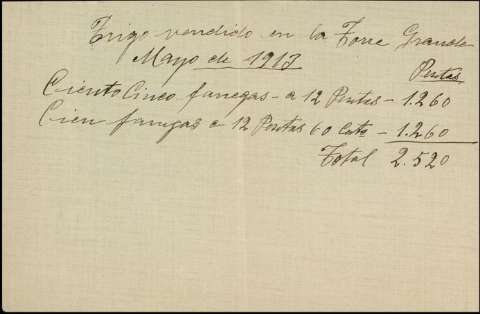 Trigo vendido en la Torre Grande
Mayo de 1913
Pesetas
Ciento Cinco fanegas - a 12 Pesetas - 1.260
Cien fanegas a 12 Pesetas 60 Cts - 1.260
Total 2.520